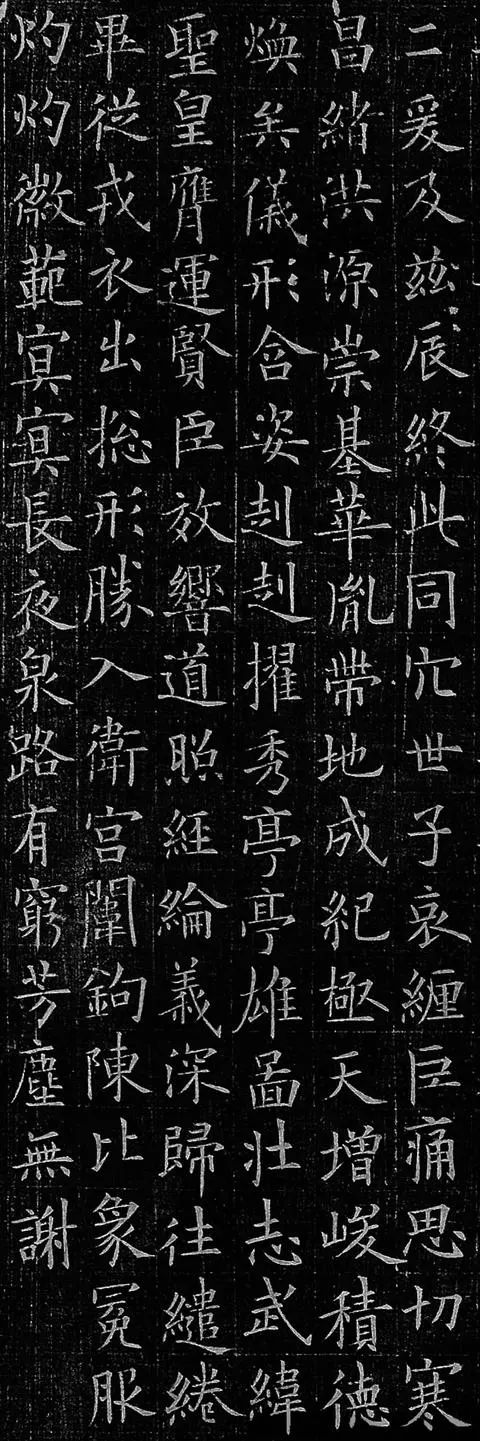 二爰及茲辰終此同穴世子哀纏巨痛思切寒
昌緒洪源崇基華胤帶地成紀極天增峻積德
煥矣儀形含姿赳赳擢秀亭亭雄圖壯志武緯
聖皇膺運賢臣放響道照經綸義深歸往繾綣
畢從戎衣出捴形勝入衛宮闈鉤陳比象冕服
灼灼徽範寘寘長夜泉路有窮芳塵無謝